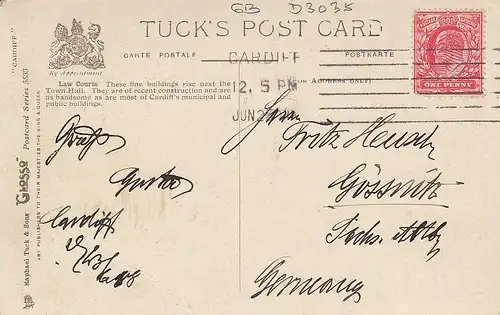 GB D3035
TUCK'S POST CARD
By Appointment
CARTE POSTALE
POSTKARTE
CARDIFF
12. 5 PM
JUN 2
OR ADDRESS ONLY)
ONE PENNY
Law Courts These fine buildings rise next the
Town Hall. They are of recent construction and are
as handsome as are most of Cardiff's municipal and
public buildings.
"CARDIFF"
Raphael Tuck & Sons' "GLOSSO" Postcard Series 5533
ART PUBLISHERS TO THEIR MAJESTIES THE KING & QUEEN
Gruß
Cardiff
Herrn
Fritz Heusch
Gössnitz
Sachs. Altbg
Germany